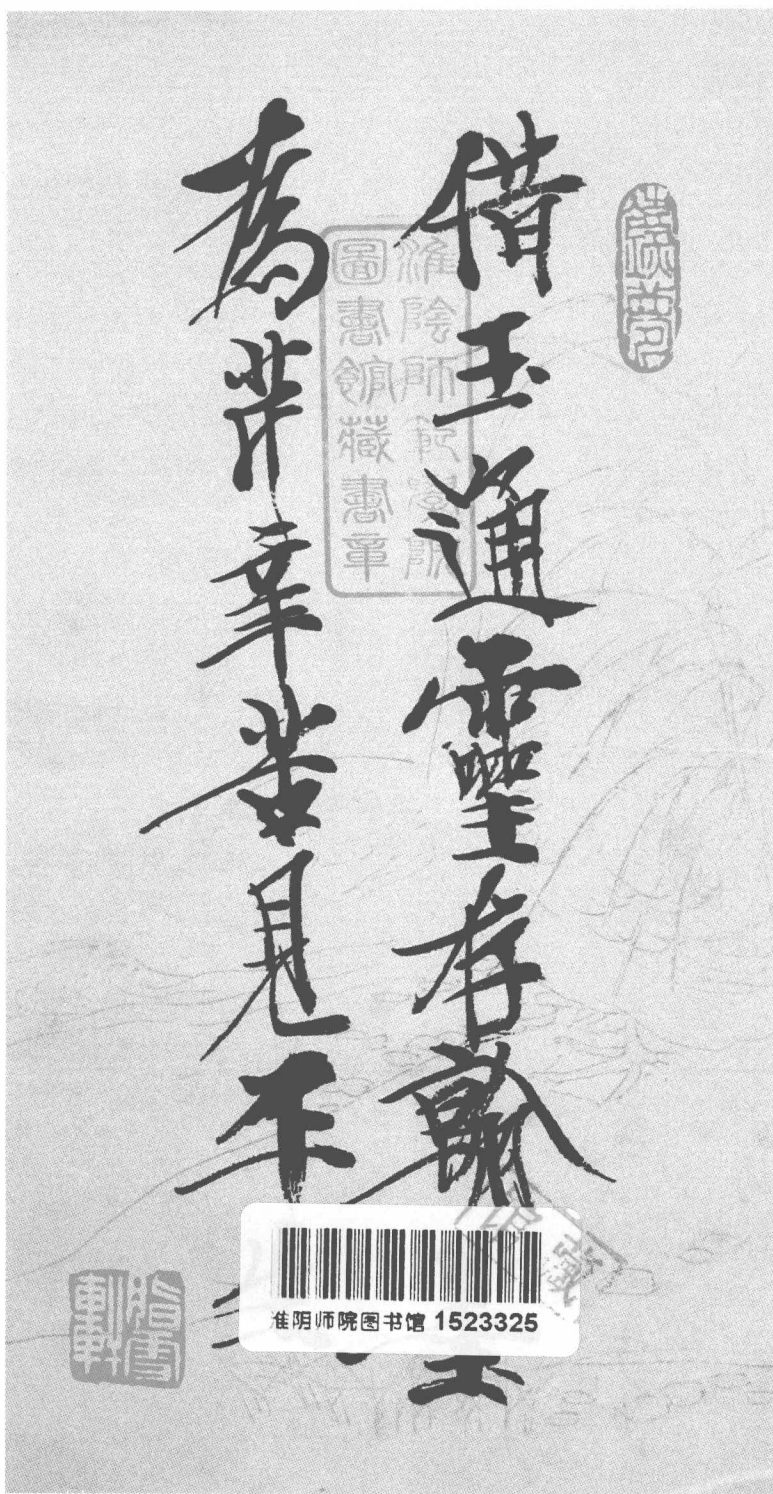 借玉通靈存翰
為芹辛苦見平
淮陰師範學院
圖書館藏書章
脂雪軒
淮阴师院图书馆 1523325